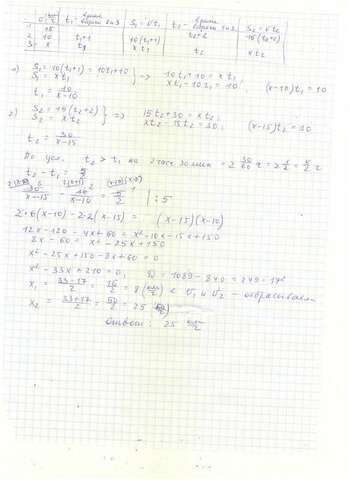 1 15
2 10 t₁+1 10(t₁+1) t₂+2 15(t₂+2)
3 x t₁ x t₁ t₂ x t₂
1) S₁ = 10(t₁+1) = 10t₁+10
S₁ = x t₁ => 10t₁+10 = x t₁
xt₁-10t₁ = 10 (x-10)t₁ = 10
t₁ = 10/(x-10)
2) S₂ = 15(t₂+2)
S₂ = x t₂ => 15t₂+30 = xt₂
xt₂-15t₂ = 30. (x-15)t₂ = 30
t₂ = 30/(x-15)
По усл. t₂ > t₁ на 2 часа 30 мин = 2 30/60 ч = 2 1/2 = 5/2 ч
t₂ - t₁ = 5/2
30/(x-15) - 10/(x-10) = 5/2 | : 5
2·6(x-10) - 2·2(x-15) = (x-15)(x-10)
12x-120-4x+60 = x²-10x-15x+150
8x-60 = x²-25x+150
x²-25x+150-8x+60 = 0
x²-33x+210 = 0, D = 1089-840 = 249 = 17²
x₁ = (33-17)/2 = 16/2 = 8 (км/ч) < V₁ и V₂ - отбрасываем
x₂ = (33+17)/2 = 50/2 = 25 (км/ч)
Ответ: 25 км/ч